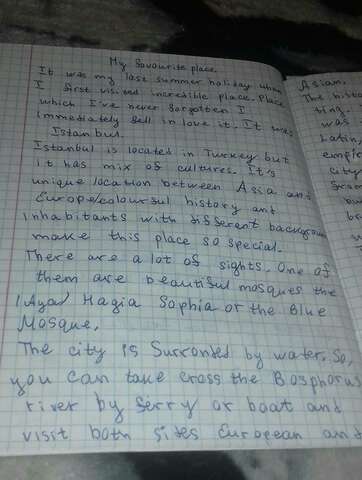 My favourite place.
It was my last summer holiday when
I first visited incredible place. Place
which I've never forgotten I
immediately fell in love it. It was
Istanbul.
Istanbul is located in Turkey but
it has mix of cultures. It's
unique location between Asia and
Europe colourful history and
inhabitants with different backgroun
make this place so special.
There are a lot of sights. One of
them are beautiful mosques the
(Ayad Hagia Sophia or the Blue
Mosque.
The city is Surronted by water. So,
you can take cross the Bosphorus
river by ferry or boat and
visit both sites European and
Asian.
The histo
ting.
was
Latin,
empir
city